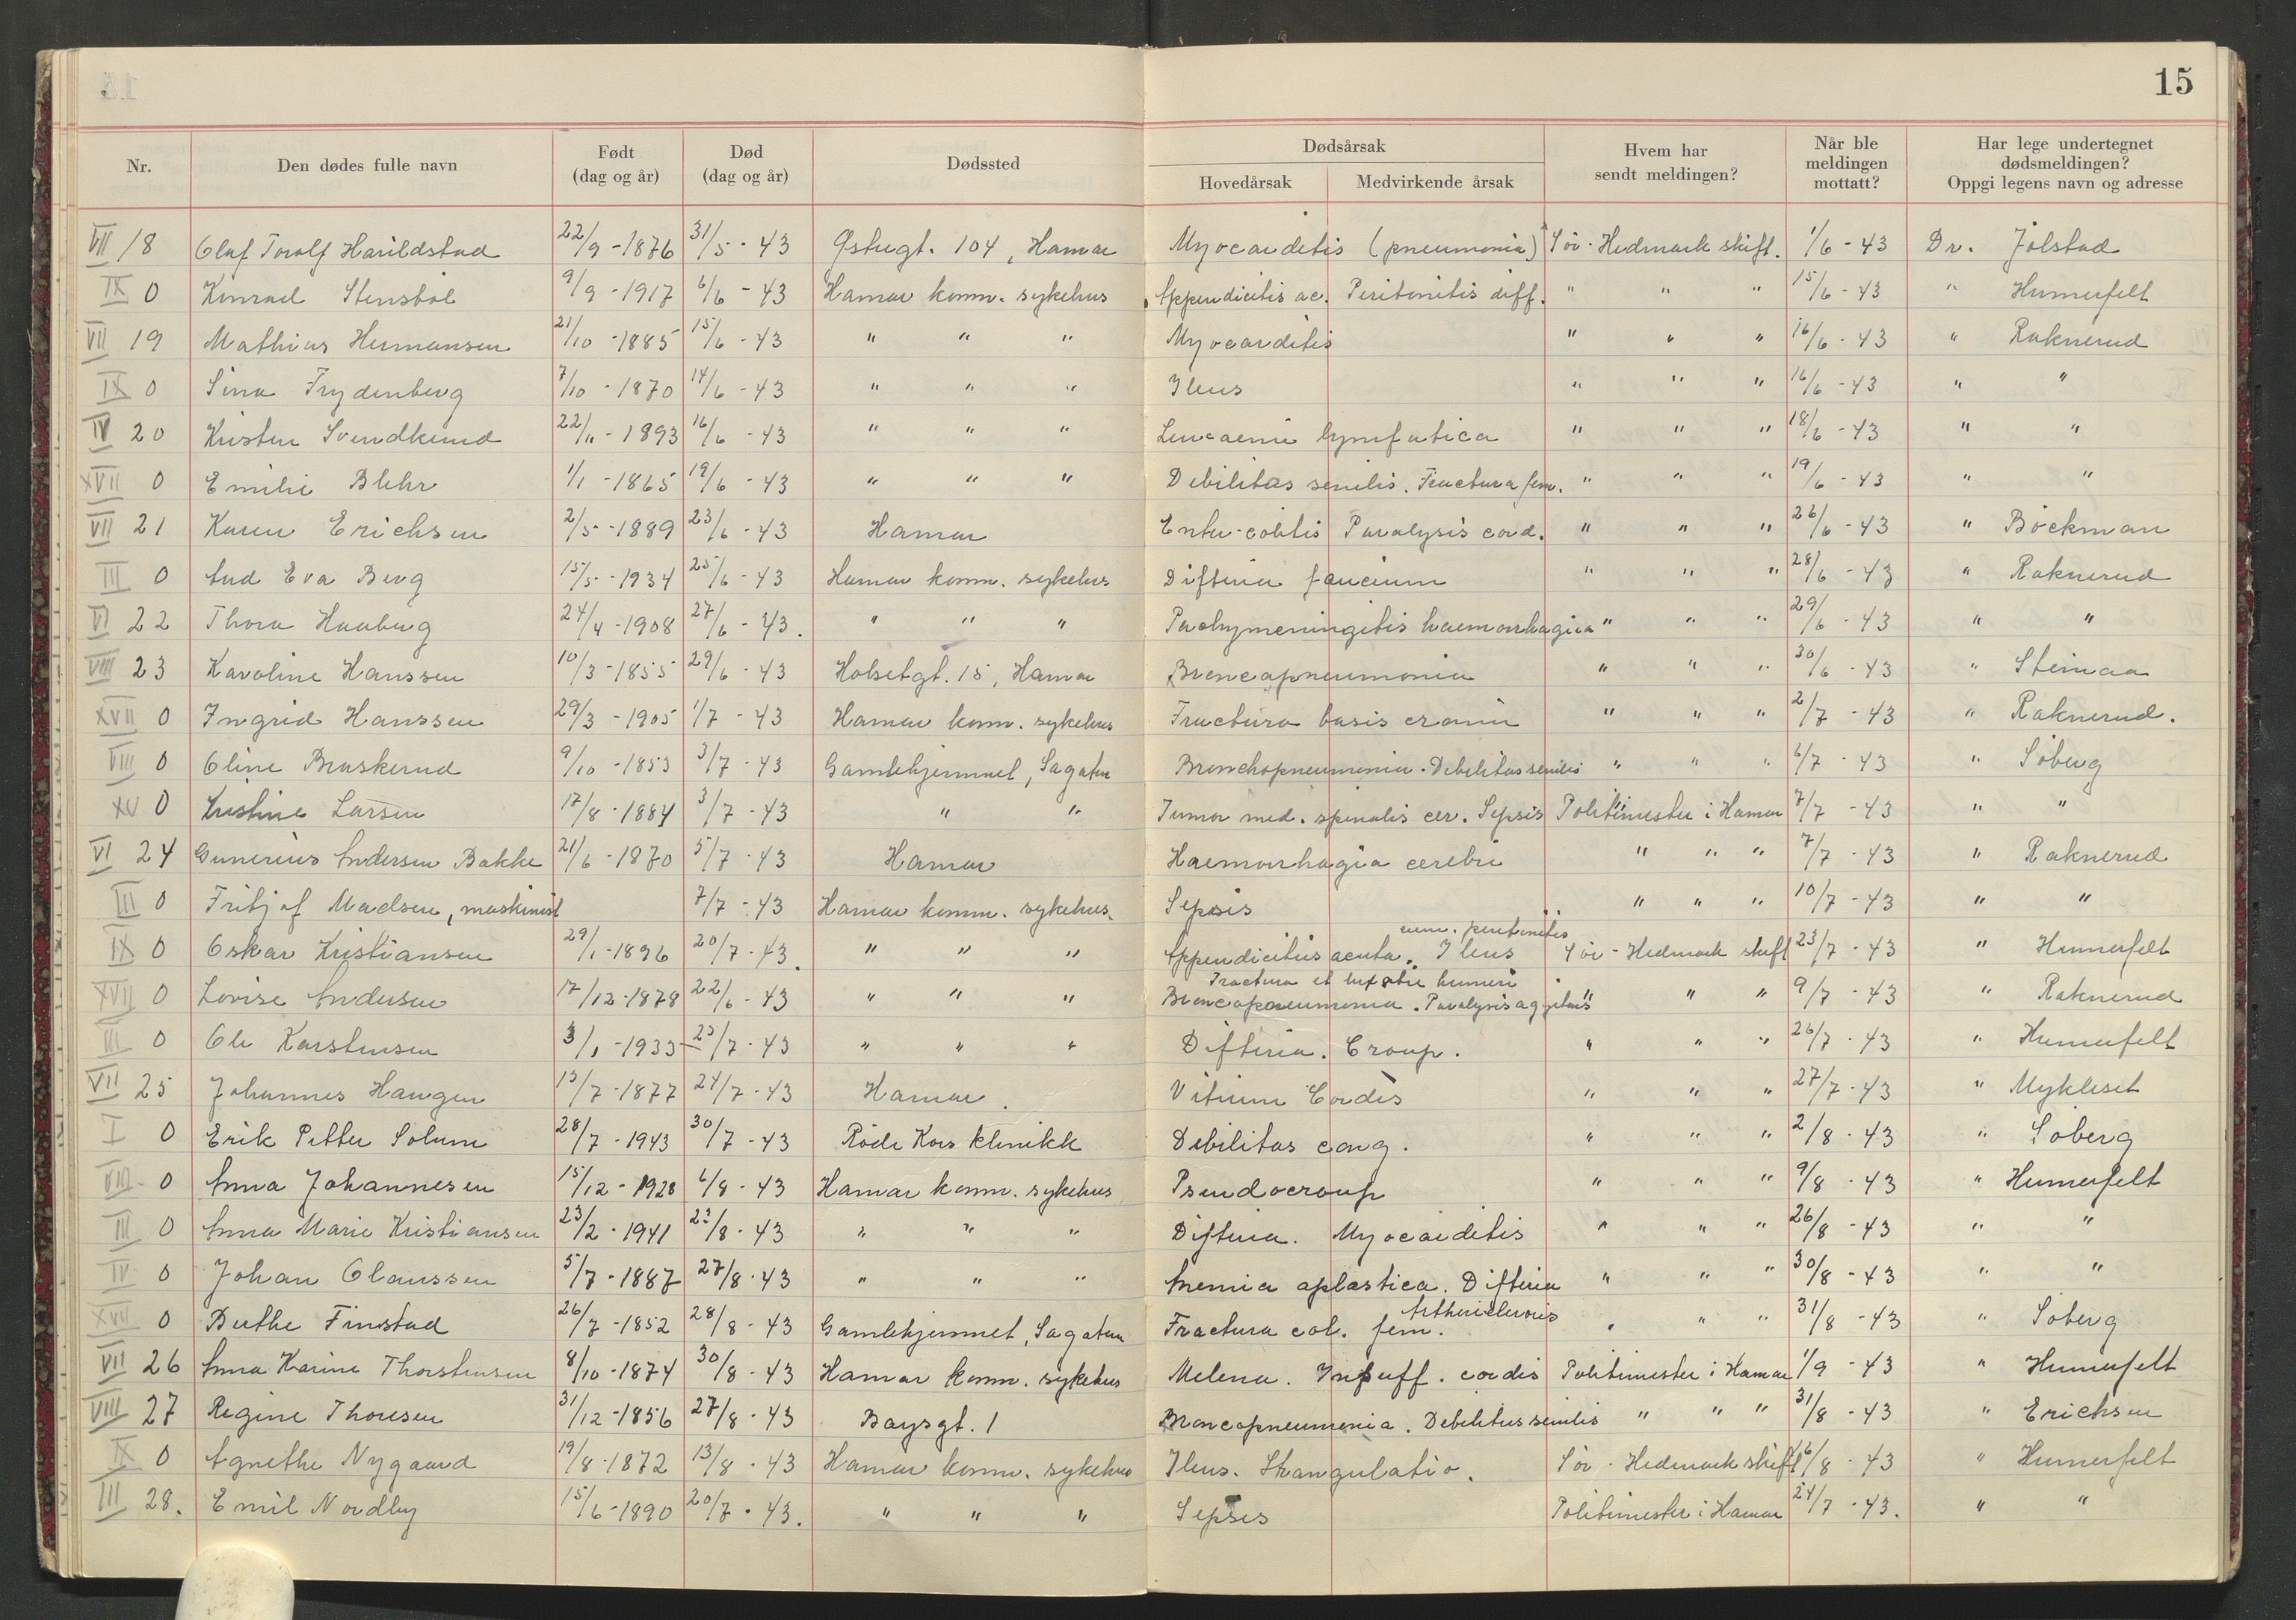 15
Nr. Den dødes fulle navn Født (dag og år) Død (dag og år) Dødssted Dødsårsak Hovedårsak Medvirkende årsak Hvem har sendt meldingen? Når ble meldingen mottatt? Har lege undertegnet dødsmeldingen? Oppgi legens navn og adresse
VII 18 Olaf Torolf Harildstad 22/9-1876 31/5-43 Østregt. 104, Hamar Myocarditis (pneumonia) Sör-Hedmark skift. 1/6-43 Dr. Jölstad
IX 0 Konrad Stensböl 9/9-1917 6/6-43 Hamar komm. sykehus Appendicitis ac. Peritonitis diff. " " " 15/6-43 " Humerfelt
VII 19 Mathias Hermansen 21/10-1885 15/6-43 " " " Myocarditis " " " 16/6-43 " Raknerud
IX 0 Sina Frydenberg 7/10-1870 14/6-43 " " " Ileus " " " 16/6-43 " "
IV 20 Kristen Svendkerud 22/11-1893 16/6-43 " " " Leucaemi lymfatica " " " 18/6-43 " "
XVII 0 Emilie Blehr 1/1-1865 19/6-43 " " " Debilitas senilis. Fractura fem. " " " 19/6-43 " "
VII 21 Karen Erichsen 2/5-1889 23/6-43 Hamar Enter-colitis Paralysis cord. " " " 26/6-43 " Böckman
III 0 Aud Eva Berg 15/5-1934 25/6-43 Hamar komm. sykehus Difteria faucium " " " 28/6-43 " Raknerud
VI 22 Thora Haaberg 24/4-1908 27/6-43. " " " Pachymeningitis haemorrhagica " " " 29/6-43 " "
VIII 23 Karoline Hanssen 10/3-1855 29/6-43 Holsetgt. 15, Hamar Broncopneumonia " " " 30/6-43 " Steinaa
XVII 0 Ingrid Hanssen 29/3-1905 1/7-43 Hamar komm. sykehus Fractura basis cranii " " " 2/7-43 " Raknerud.
VIII 0 Oline Braskerud 9/10-1853 3/7-43 Gamlehjemmet, Sagatun Bronchopneumonia. Debilitas senilis " " " 6/7-43 " Söberg
XV 0 Kristine Larsen 17/8-1884 3/7-43 " " Tumor med. spinalis cer. Sepsis Politimester i Hamar 7/7-43 " "
VI 24 Gunerius Andersen Bakke 21/6-1870 5/7-43 Hamar Haemorrhagia cerebri " " " 7/7-43 " Raknerud
III 0 Fritjof Madsen, maskinist 7/7-43 Hamar komm. sykehus. Sepsis " " " 10/7-43 " "
IX 0 Oskar Kristiansen 29/1-1896 20/7-43. " " " Appendicitis acuta. Ileus cum. peritonitis Sör-Hedmark skift 23/7-43 " Humerfelt
XVII 0 Lovise Andersen 17/12-1878 22/6-43 " " " Fractura et luxatio humeri Broncopneumonia. Paralysis agitans " " " 9/7-43 " Raknerud
III 0 Ole Karstensen 3/1-1933 23/7-43 " " " Difteria. Croup. " " " 26/7-43 " Humerfelt
VII 25 Johannes Haugen 13/7-1877 24/7-43 Hamar. Vitium Cordis " " " 27/7-43 " Mykleset
I 0 Erik Petter Solum 28/7-1943 30/7-43 Röde Kors klinikk Debilitas cong. " " " 2/8-43 " Söberg
VIII 0 Anna Johannesen 15/12-1928 6/8-43 Hamar komm. sykehus Pseudocroup " " " 9/8-43 " Humerfelt
III 0 Anna Marie Kristiansen 23/2-1941 23/8-43 " " " Difteria. Myocarditis " " " 26/8-43 " "
IV 0 Johan Olaussen 5/7-1887 27/8-43 " " " Anemia aplastica. Difteria " " " 30/8-43 " "
XVII 0 Berthe Finstad 26/7-1852 28/8-43 Gamlehjemmet, Sagatun Fractura col. fem. " " " 31/8-43 " Söberg
VII 26 Anna Karine Thorstensen 8/10-1874 30/8-43 Hamar komm. sykehus Melena. Insuff. cordis Politimester i Hamar 1/9-43 " Humerfelt
VIII 27 Regine Thoresen 31/12-1856 27/8-43 Baysgt. 1 Broncopneumonia. Debilitas senilis " " " 31/8-43 " Erichsen
IX 0 Agnethe Nygaard 19/8-1872 13/8-43 Hamar komm. sykehus Ileus. Strangulatio. Sör-Hedmark skift 16/8-43 " Humerfelt
III 28. Emil Nordby 15/6-1890 20/7-43. " " " Sepsis Politimester i Hamar 24/7-43. " "